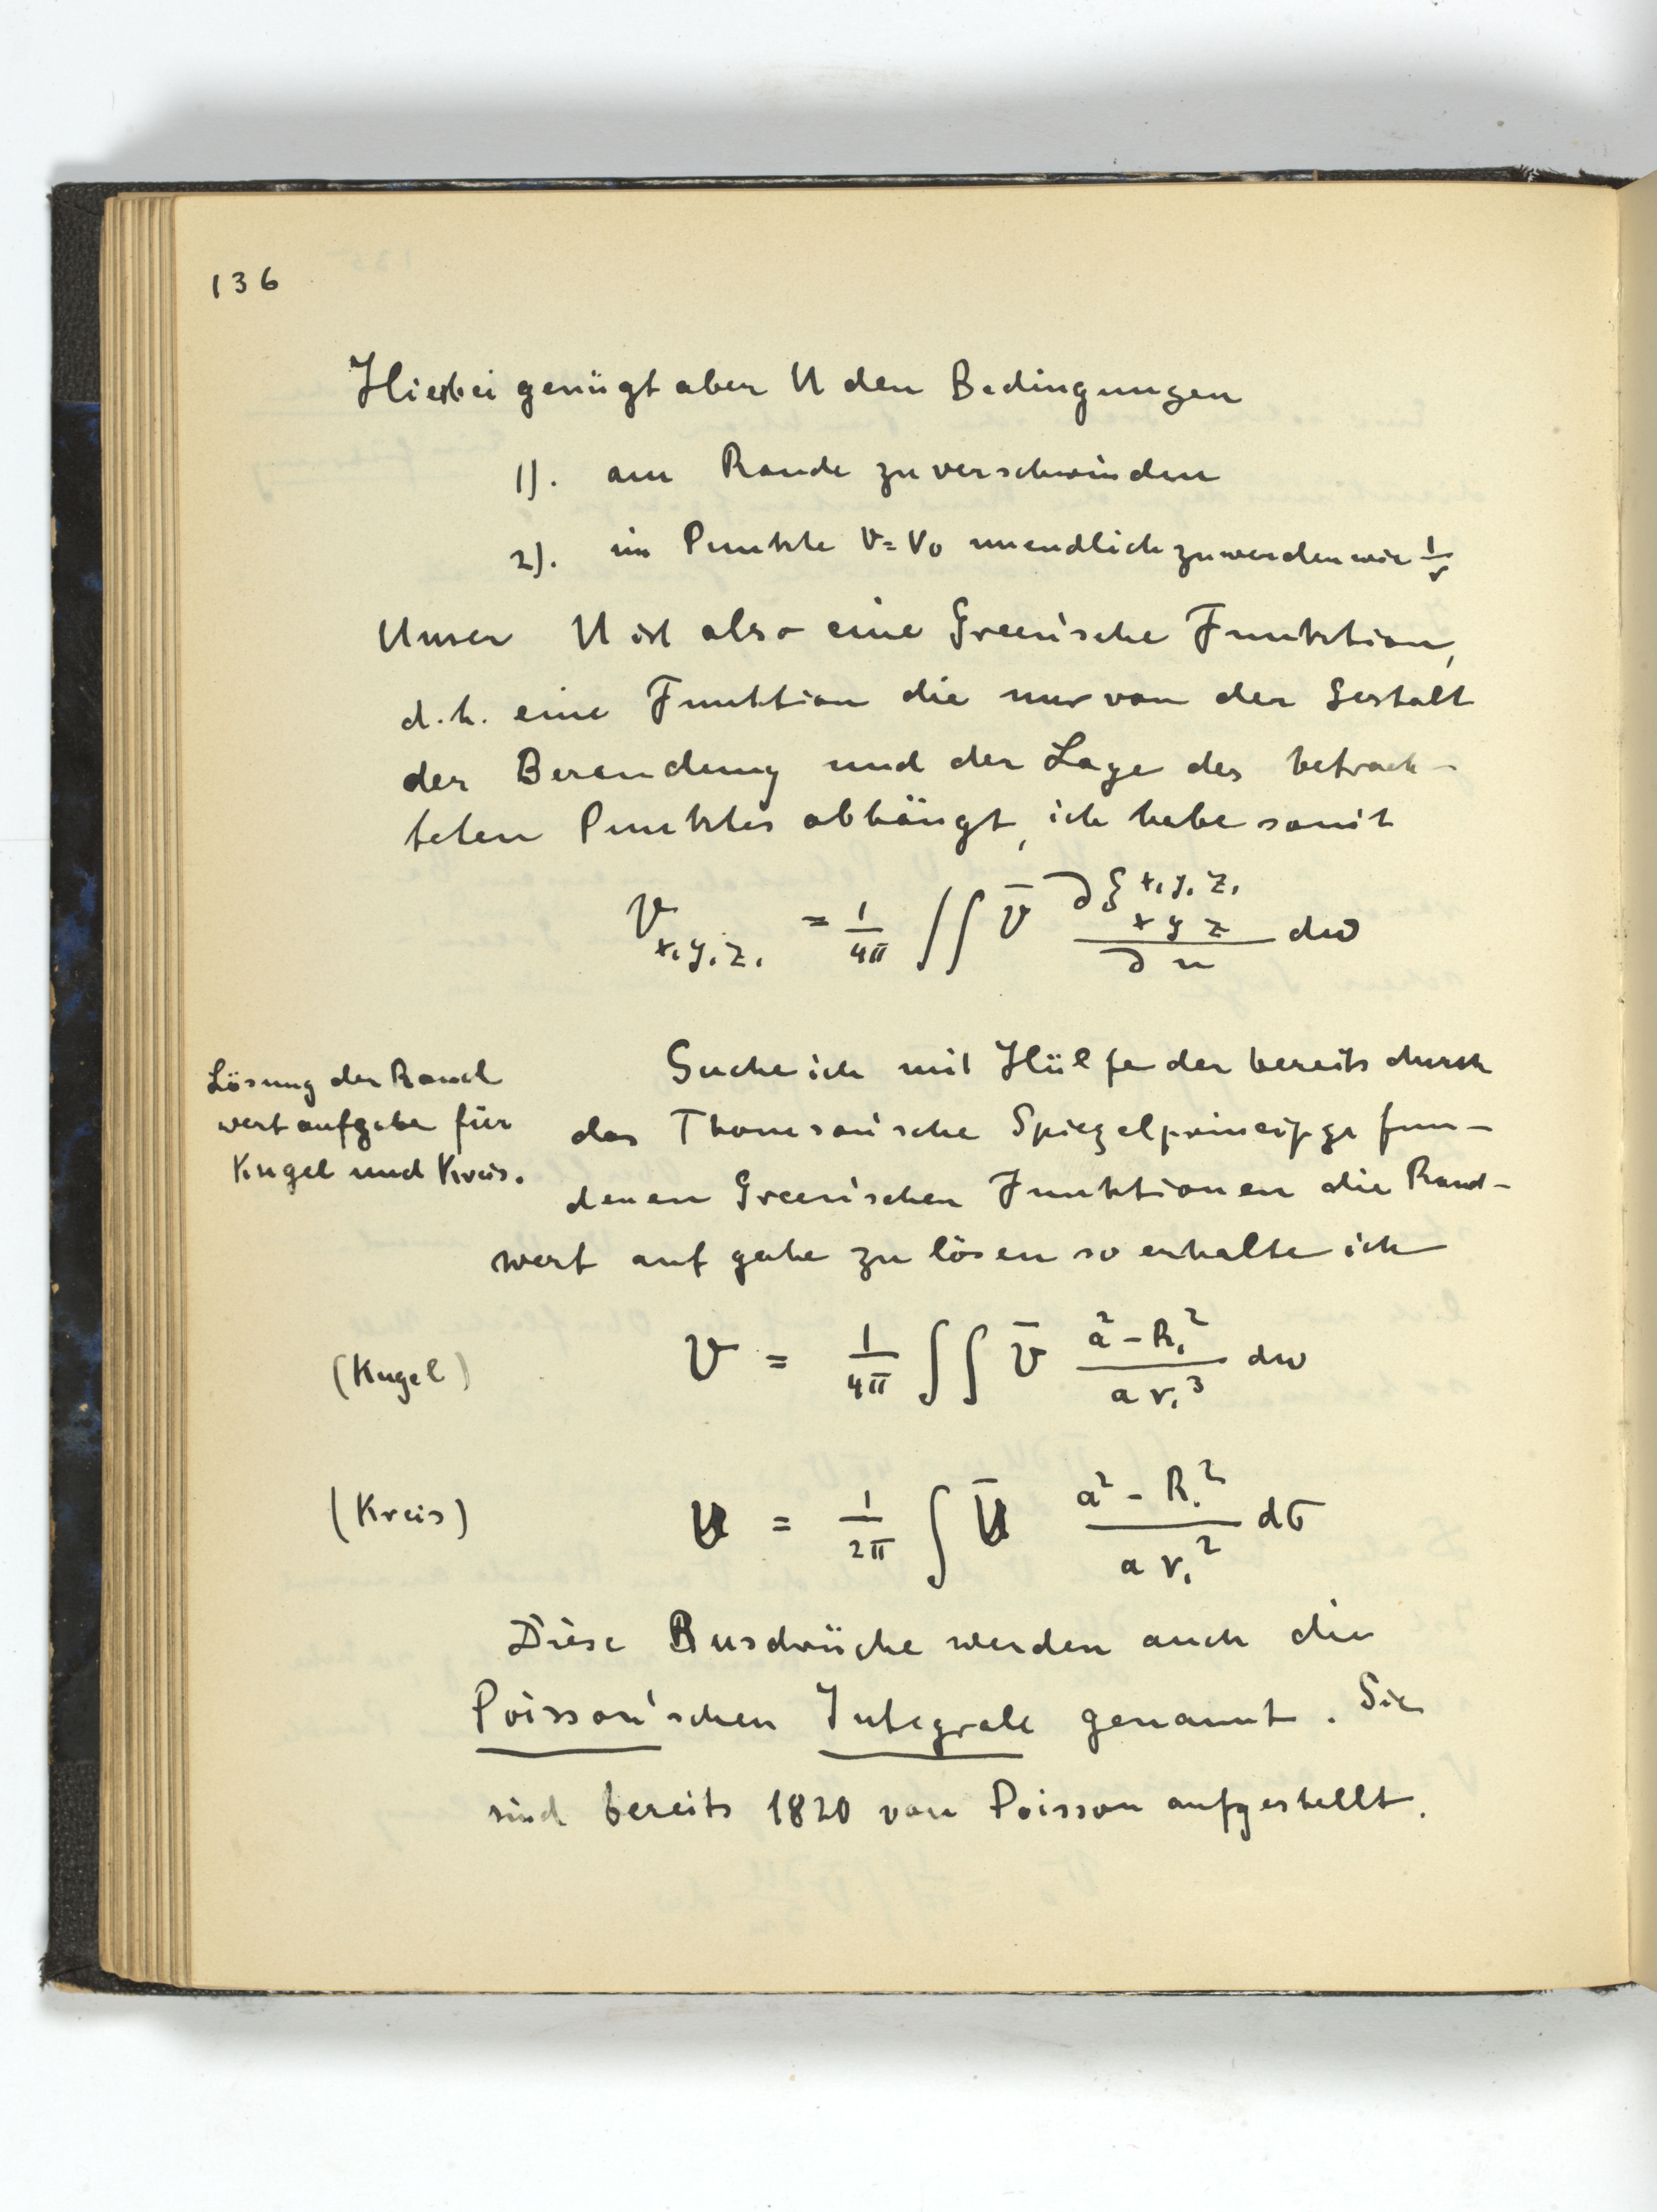 136
Hierbei genügt aber U den Bedingungen
1). am Rande zu verschwinden
2). im Punkte V=V₀ unendlich zu werden wie 1/r
Unser U ist also eine Green'sche Funktion,
d.h. eine Funktion die nur von der Gestalt
der Berandung und der Lage des betrach-
teten Punktes abhängt, ich habe somit
V x₁y₁z₁ = 1/4π ∫∫ V̄ ∂G x₁y₁z₁ x y z / ∂n dω
Lösung der Rand
wertaufgabe für
Kugel und Kreis.
Suche ich mit Hülfe der bereits durch
das Thomson'sche Spiegelprincip gefun-
denen Green'schen Funktionen die Rand-
wert aufgabe zu lösen so erhalte ich
(Kugel) V = 1/4π ∫∫ V̄ (a² - R₁²)/(a r₁³) dω
(Kreis) U = 1/2π ∫ Ū (a² - R₁²)/(a r₁²) dσ
Diese Ausdrücke werden auch die
Poisson'schen Integrale genannt. Sie
sind bereits 1820 von Poisson aufgestellt.